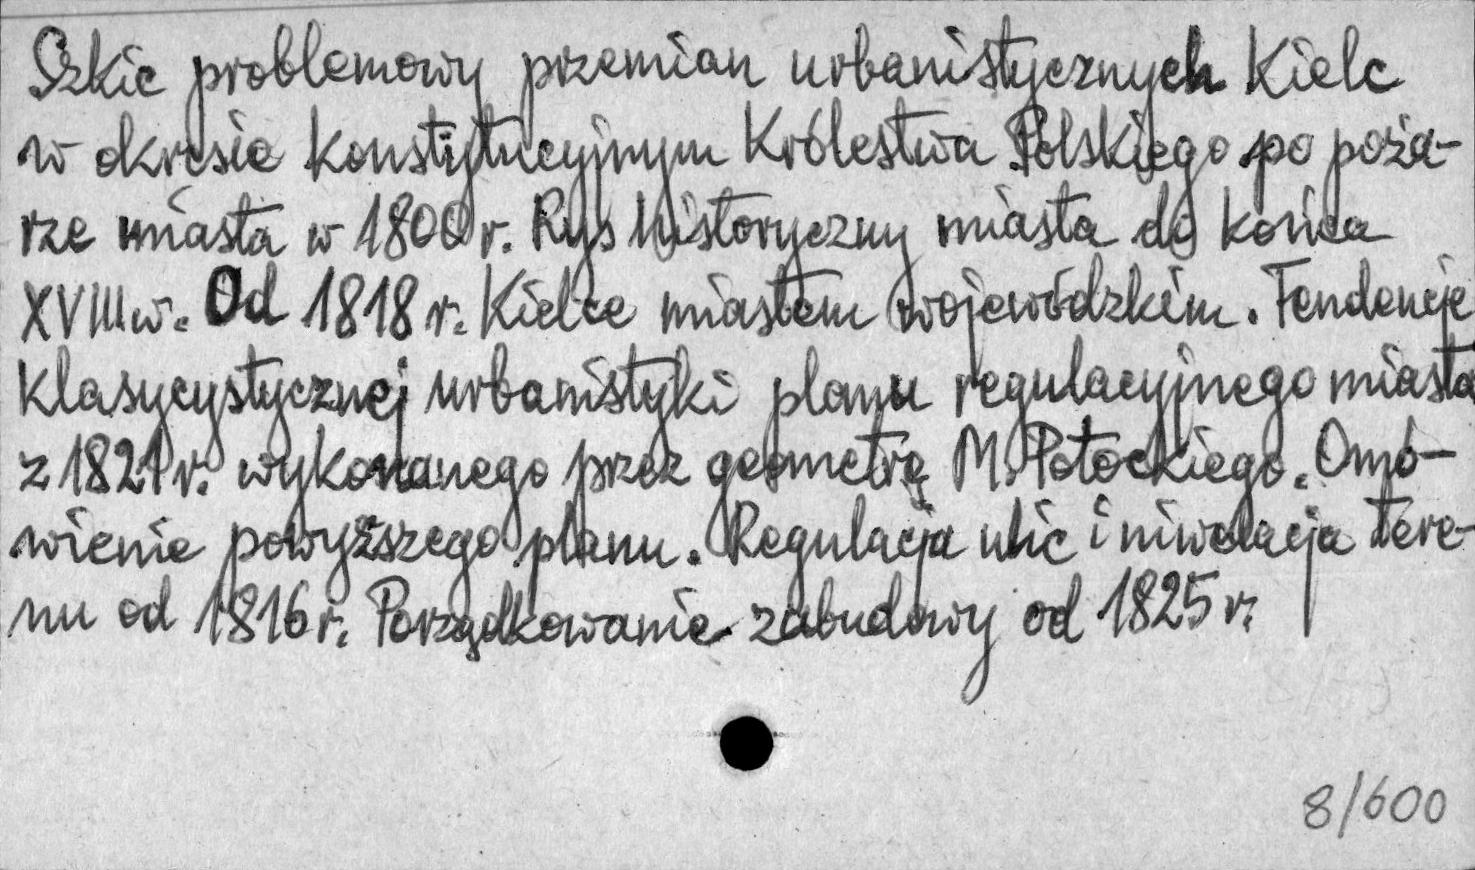 Szkic problemowy przemian urbanistycznych Kielc
w okresie konstytucyjnym Królestwa Polskiego po poża-
rze miasta w 1800 r. Rys historyczny miasta do końca
XVIII w. Od 1818 r. Kielce miastem wojewódzkim. Tendencje
klasycystycznej urbanistyki planu regulacyjnego miasta
z 1821 r. wykonanego przez geometrę M. Potockiego. Omó-
wienie powyższego planu. Regulacja ulic i niwelacja tere-
nu od 1816 r. Porządkowanie zabudowy od 1825 r.
8/600